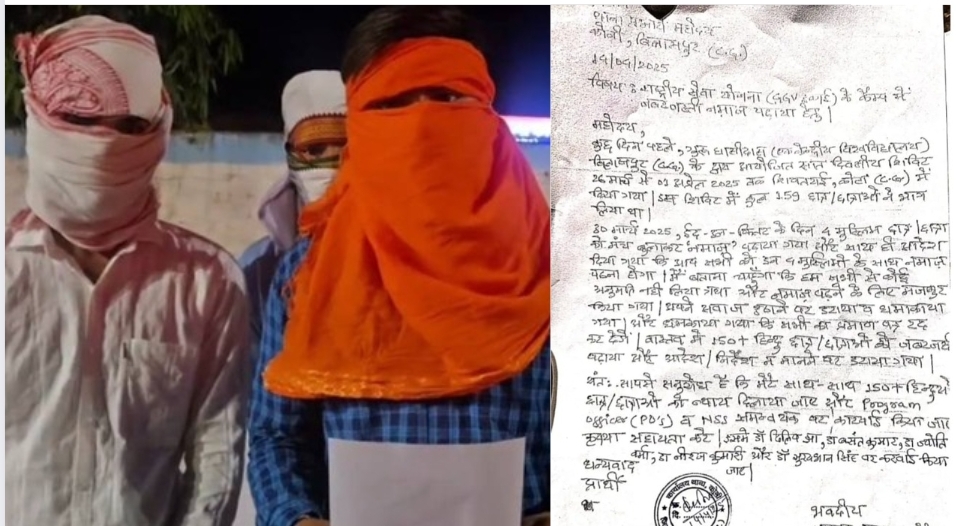 थाना प्रभारी महोदय
कोनी, बिलासपुर (C.G.)
14/04/2025
विषय : राष्ट्रीय सेवा योजना (GGV इकाई) के कैम्प में
जबरजस्ती नमाज पढ़ाया हेतु।
महोदय,
कुछ दिन पहले, गुरु घासीदास (केन्द्रीय विश्वविद्यालय)
बिलासपुर (C.G.) के द्वारा आयोजित सात दिवसीय शिविर
26 मार्च से 01 अप्रैल 2025 तक शिवतराई, कोटा (C.G.) में
किया गया। इस शिविर में कुल 159 छात्र/छात्राओं ने भाग
लिया था।
30 मार्च 2025, ईद-उल-फितर के दिन 4 मुस्लिम छात्र/छात्रा
को मंच बुलाकर 'नमाज' पढ़ाया गया और साथ ही आदेश
दिया गया कि आप सभी को इन 4 मुस्लिमों के साथ नमाज
पढ़ना होगा। मैं बताना चाहूँगा कि हम सभी से कोई
अनुमति नहीं लिया गया और नमाज पढ़ने के लिए मजबूर
किया गया। हमने आवाज उठाने पर डराया व धमकाया
गया। और धमकाया गया कि सभी का प्रमाण पत्र रद्द
कर देंगे। वास्तव में 150+ हिन्दू छात्र/छात्राओं को जबरजस्ती
पढ़ाया और आदेश/निर्देश न मानने पर डराया गया।
अतः आपसे अनुरोध है कि मेरे साथ-साथ 150+ हिन्दुओं
छात्र/छात्राओं को न्याय दिलाया जाए और Program
officer (PO's) व NSS समन्वयक पर कार्रवाई किया जाए
कृपया सहायता करें। इसमें डॉ दिलीप झा, डॉ बसंत कुमार, डॉ ज्योति
वर्मा, डॉ नीरज कुमारी और डॉ सूर्यभान सिंह पर कार्रवाई किया
जाए।
धन्यवाद
प्रार्थी
भवदीय